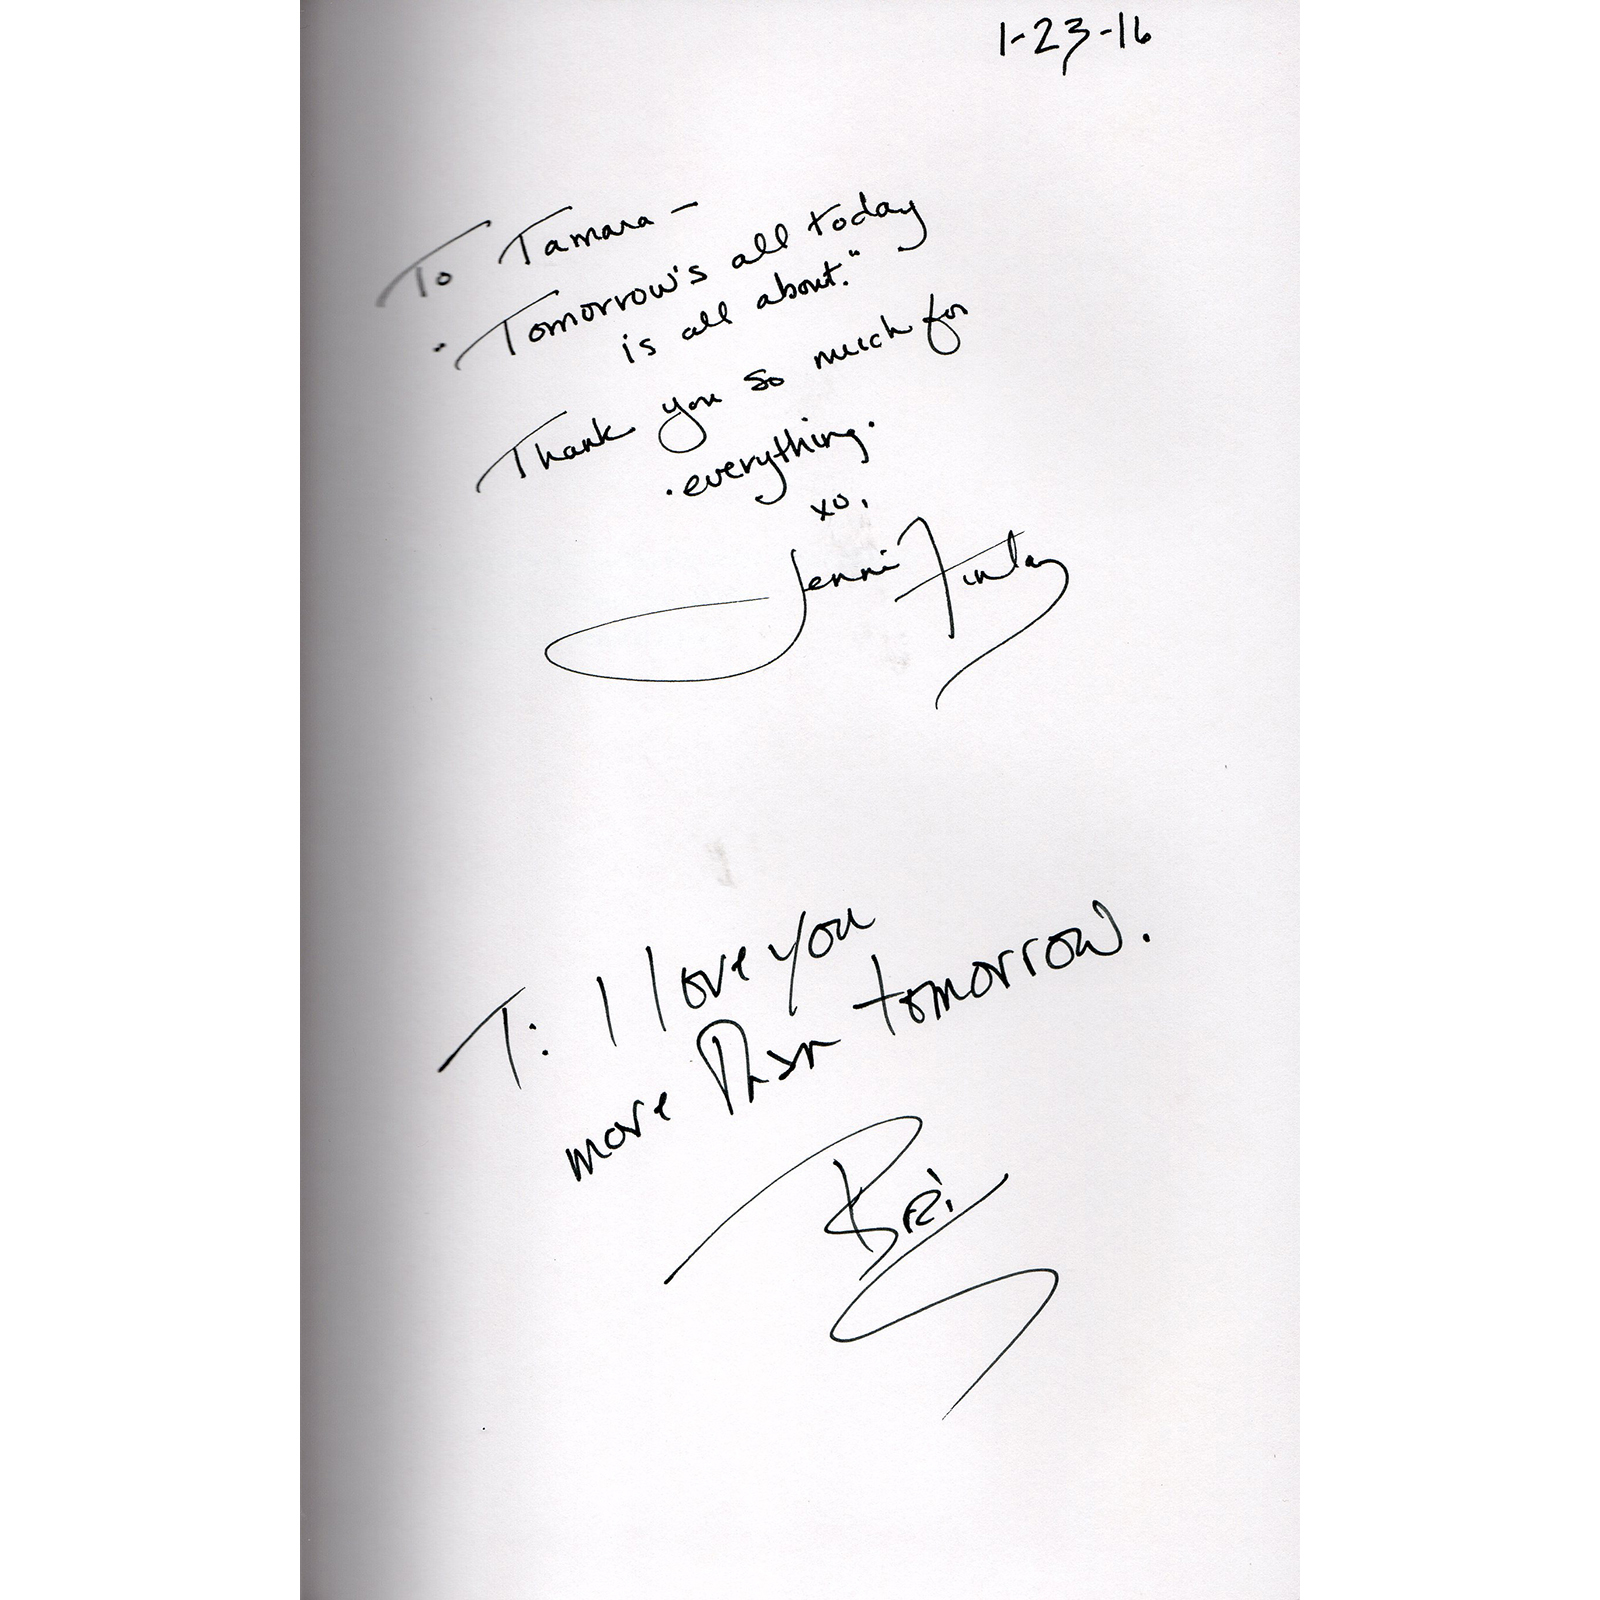 1-23-16
To Tamara -
"Tomorrow's all today
is all about."
Thank you so much for
everything.
xo,
Jenni Finlay
T: I love you
more than tomorrow.
Bri